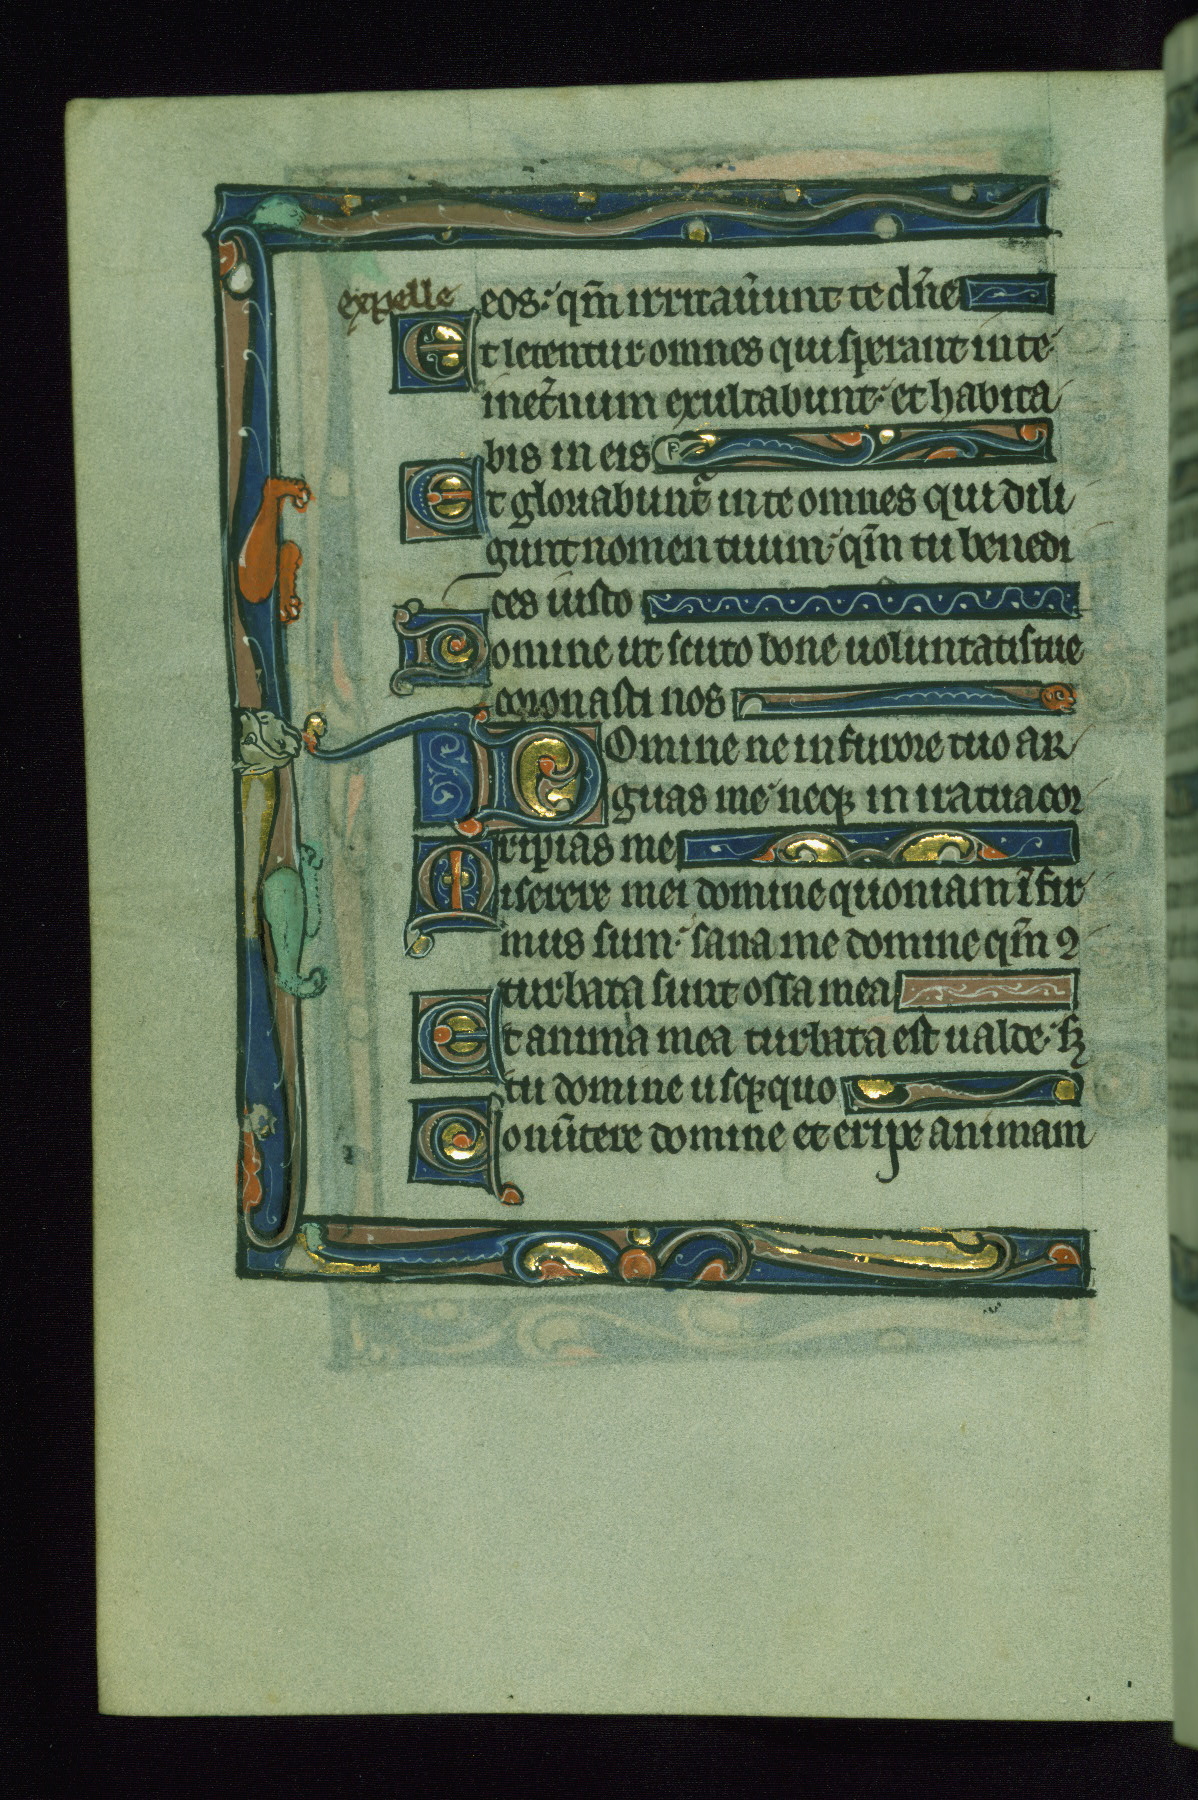 expelle eos: qm̄ irritaūunt te dn̄e
Et letentur omnes qui sperant in te
inet̄num exultabunt: et habita
bis in eis
Et gloriabunt᷑ in te omnes qui dili
gunt nomen tuum: qm̄ tu benedi
ces iusto
Domine ut scuto bone uoluntatis tue
coronasti nos
DOmine ne in furore tuo ar
guas me: neqꝫ in ira tua cor
ripias me
Miserere mei domine quoniam īfir
mus sum: sana me domine qm̄ ꝯ
turbata sunt ossa mea
Et anima mea turbata est ualde: sꝫ
tu domine usqꝫquo
Conūtere domine et eripe animam